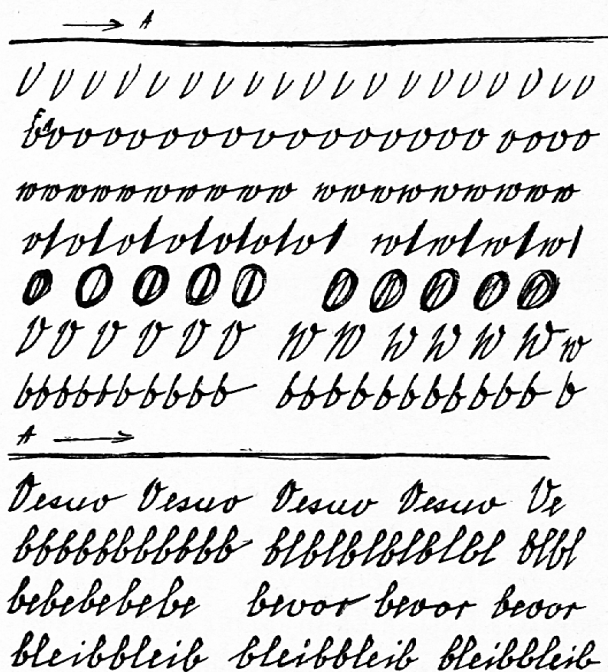 → A
v v v v v v v v v v v v v v v v v v v
vvvvvvvvvvvvvvvv vvvv
wwwwwwwwww wwwwwwwww
vlvlvlvlvlvlvl wlwlwlwl
O O O O O O O O O O
V V V V V V W W W W W W w
bbbbbbbbbb bbbbbbbbbbb b
A →
Vesuv Vesuv Vesuv Vesuv Ve
bbbbbbbbbbb blblblblblbl blbl
bebebebebe bevor bevor bevor
bleibbleib bleibbleib bleibbleib